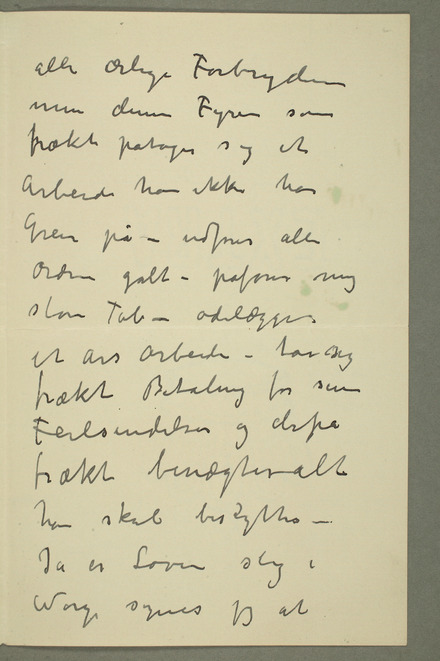 alle ærlige Forbrydere
men denne Fyren som
frækt patager sig et
Arbeide han ikke har
Grein på – udfører alle
Ordrer galt – paforer mig
store Tab – odelægger
et års Arbeide – tar sig
frækt Betaling for sine
Feilsendelser og derpå
frækt benægter alt
han skal beskyttes –
Ja er Loven slig i
Norge synes jeg at